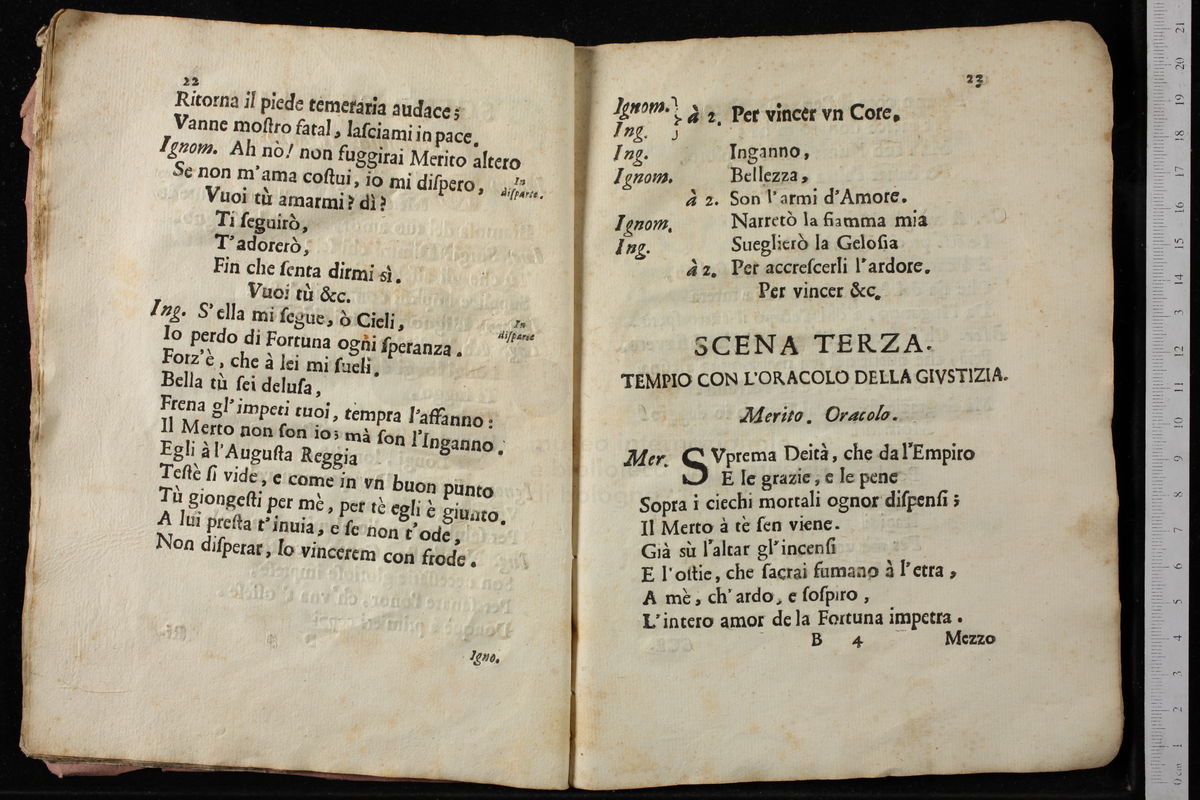 22
Ritorna il piede temeraria audace;
Vanne moſtro fatal, laſciami in pace.
Ignom. Ah nò! non fuggirai Merito altero
Se non m'ama coſtui, io mi diſpero, In diſparte.
Vuoi tù amarmi? dì?
Ti ſeguirò,
T'adorerò,
Fin che ſenta dirmi sì.
Vuoi tù &c.
Ing. S'ella mi ſegue, ò Cieli, In diſparte
Io perdo di Fortuna ogni ſperanza.
Forz'è, che à lei mi ſueli.
Bella tù ſei deluſa,
Frena gl'impeti tuoi, tempra l'affanno:
Il Merto non ſon io; mà ſon l'Inganno.
Egli à l'Auguſta Reggia
Teſtè ſi vide, e come in vn buon punto
Tù giongeſti per mè, per tè egli è giunto.
A lui preſta t'inuia, e ſe non t'ode,
Non diſperar, lo vincerem con frode.
Igno.
23
Ignom. } à 2. Per vincer vn Core.
Ing.
Ing. Inganno,
Ignom. Bellezza,
à 2. Son l'armi d'Amore.
Ignom. Narretò la fiamma mia
Ing. Sueglierò la Geloſia
à 2. Per accreſcerli l'ardore.
Per vincer &c.
SCENA TERZA.
TEMPIO CON L'ORACOLO DELLA GIVSTIZIA.
Merito. Oracolo.
Mer. SVprema Deità, che da l'Empiro
E le grazie, e le pene
Sopra i ciechi mortali ognor diſpenſi;
Il Merto à tè ſen viene.
Già sù l'altar gl'incenſi
E l'oſtie, che ſacrai fumano à l'etra,
A mè, ch'ardo, e ſoſpiro,
L'intero amor de la Fortuna impetra.
B 4 Mezzo